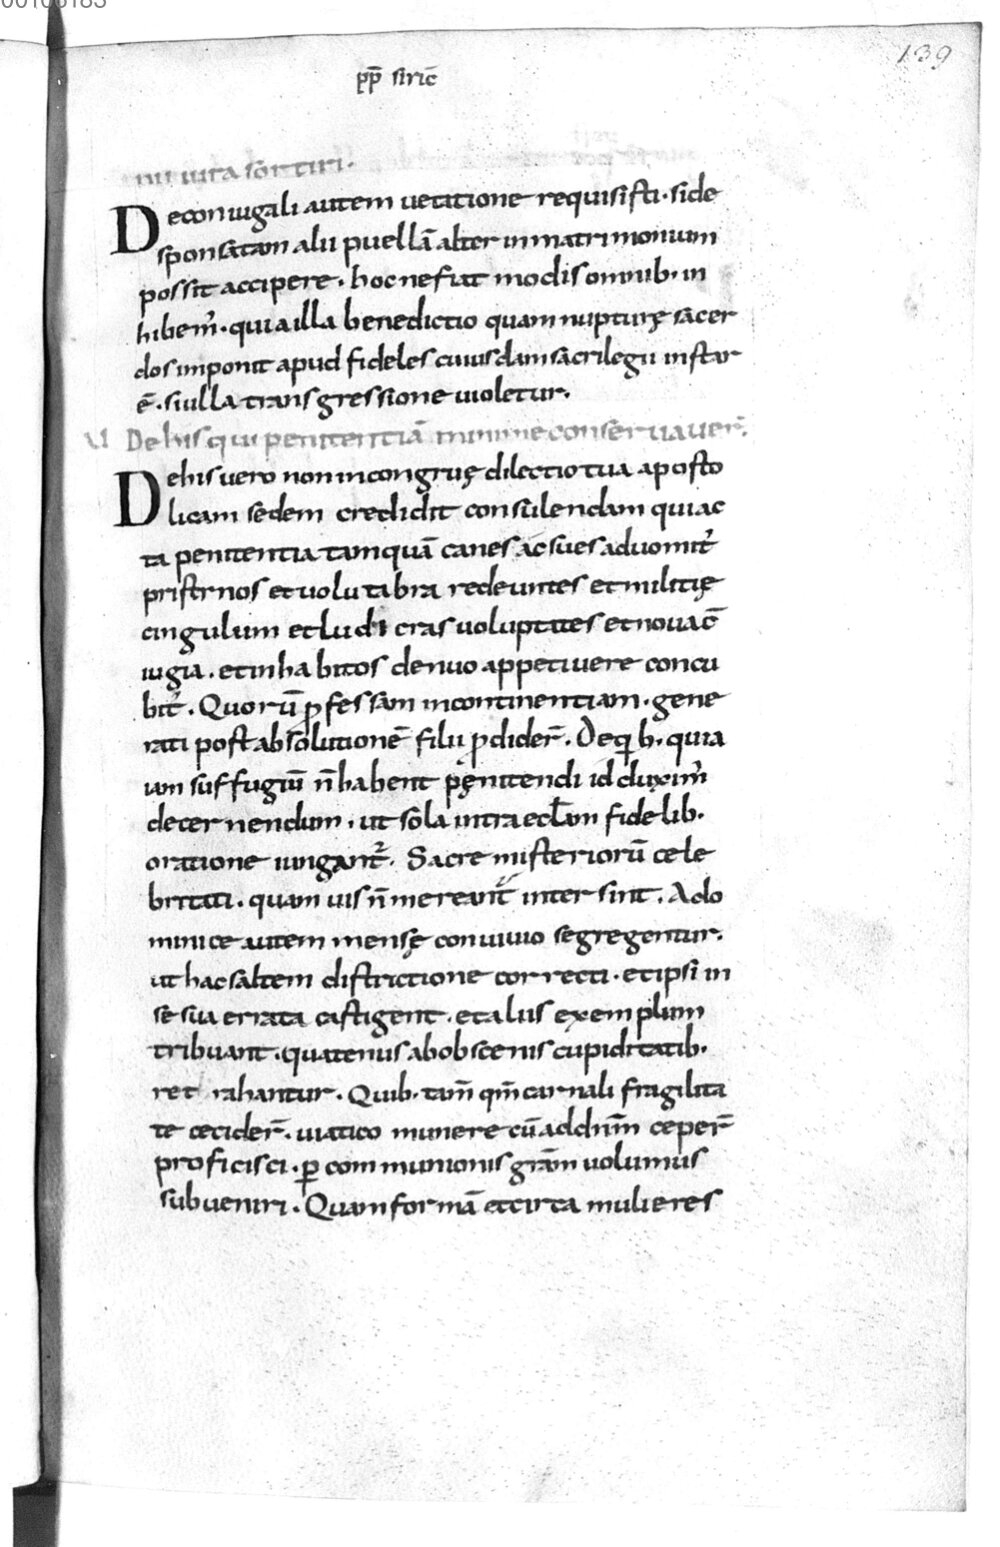 00106183
139
pp̄ siric̄
nii iura sortiri.
De coniugali autem uetatione requisisti. si de
sponsatam alii puellā alter in matrimonium
possit accipere. hoc ne fiat modis omnib. in
hibem̄. quia illa benedictio quam nupturę sacer
dos imponit apud fideles cuiusdam sacrilegii instar
ē. si ulla transgressione uioletur.
VI De his qui penitentiā minime conseruauer̄.
De his uero non incongruę dilectio tua aposto
licam sedem credidit consulendam qui ac
ta penitentia tamquā canes ac sues ad uomit᷒
pristinos et uolutabra redeuntes et militię
cingulum et ludicras uoluptates et noua c̄
iugia. et inhabitos denuo appetiuere concu
bit᷒. Quorū ꝓfessam incontinentiam. gene
rati post absolutionē filii ꝓdider̄. De q̄ b. quia
iam suffugiū n̄ habent pęnitendi id duxim᷒
decernendum. ut sola intra eccl̄am fidelib.
oratione iungant᷒. Sacre misteriorū cele
britati. quamuis n̄ mereant᷒ inter sint. A do
minice autem mensę conuiuio segregentur.
ut hac saltem districtione correcti. et ipsi in
se sua errata castigent. et aliis exemplum
tribuant. quatenus ab obscenis cupiditatib.
retrahantur. Quib. tam̄ qm̄ carnali fragilita
te cecider̄. uiatico munere cū ad dn̄m ceper̄
proficisci. ꝑ communionis gr̄am uolumus
subueniri. Quam formā et circa mulieres